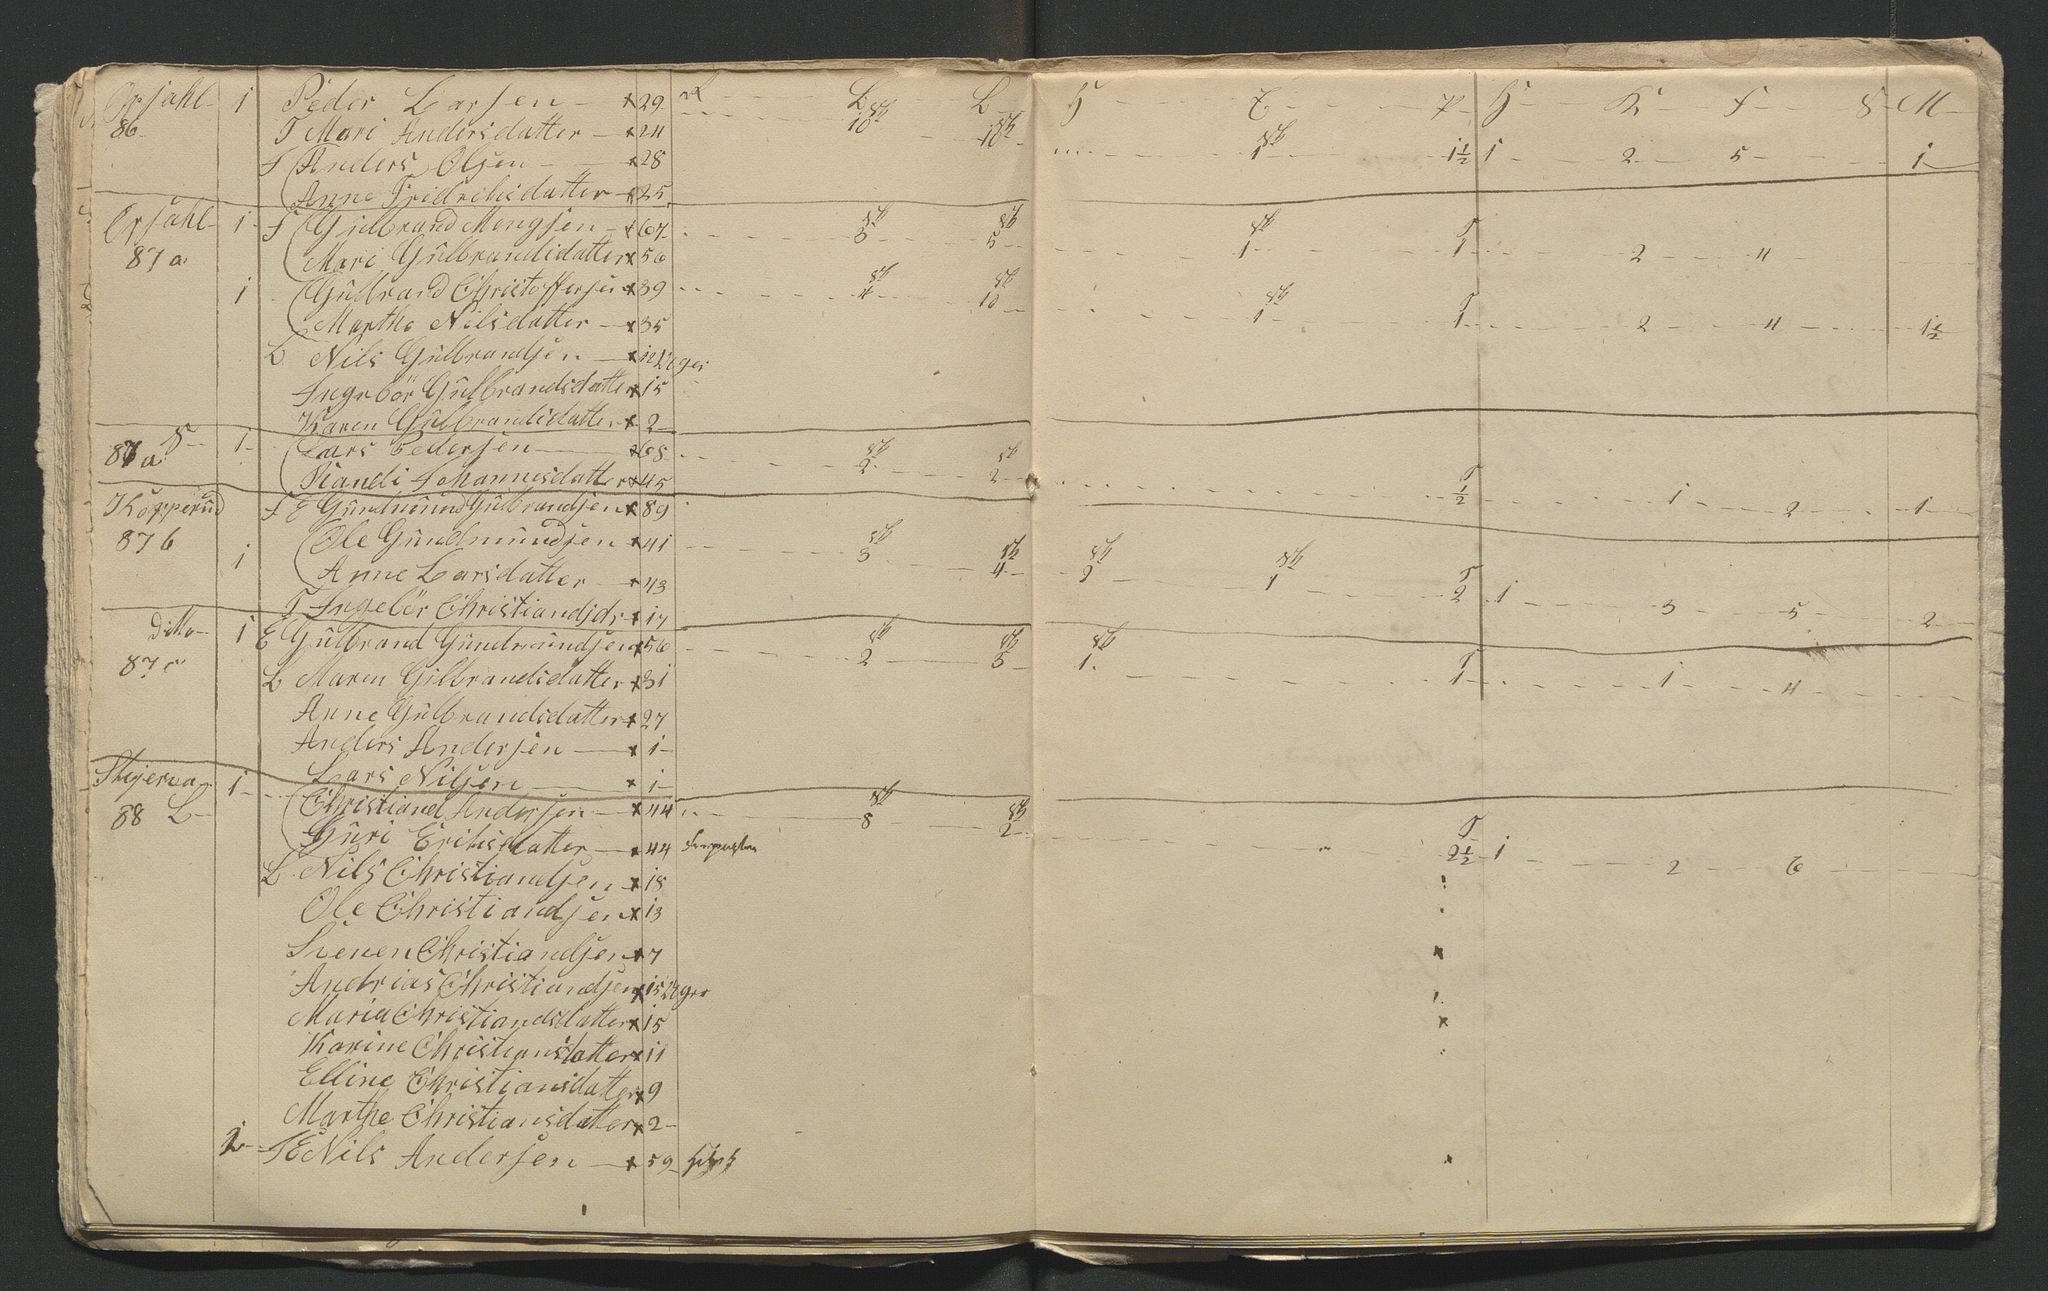 Opsahl 1 Peder Larsen x 29 R L L H E P H K F S M
86 T Mari Andersdatter x 24 10 10 1 1½ 1 2 5 1
F Anders Olsen x 28
Anne Fridrichsdatter x 25
Opsahl 1 F Gulbrand Mongsen x 67 3 5 1 T 1 2 4
87 a Mari Gulbrandsdatter x 56
1 Gulbrand Christoffersen x 39 4 10 1 T 1 2 4 1½
Marthe Nilsdatter x 35
L Nils Gulbrandsen x 12
Ingebör Gulbrandsdatter x 15
Karen Gulbrandsdatter x 2
S 1 Lars Pedersen x 68 2 2 T ½ 1 2 1
87 a Randi Johannesdatter x 45
Kopperud F E Gundmund Gulbrandsen x 89
87 b 1 Ole Gundmundsen x 41 3 4 2 1 T 2 1 3 5 2
Anne Larsdatter x 43
T Ingebör Christiandsdr x 17
ditto 1 E Gulbrand Gundmundsen x 56 2 3 1 T 1 1 4
87 c L Maren Gilbrandsdatter x 31
Anne Gulbrandsdatter x 27
Anders Andersen x 1
Lars Nilsen x 1
1 Christiand Andersen x 44 8 2 T 2½ 1 2 6
88 L Guri Erichsdatter x 44
L Nils Christiandsen x 18
Ole Christiandsen x 13
Svenen Christiandsen x 7
Andrias Christiandsen x 15
Maria Christiandsdatter x 15
Karine Christiansdatter x 11
Elline Christiansdatter x 9
Marthe Christiansdatter x 2
1 F E Nils Andersen x 59